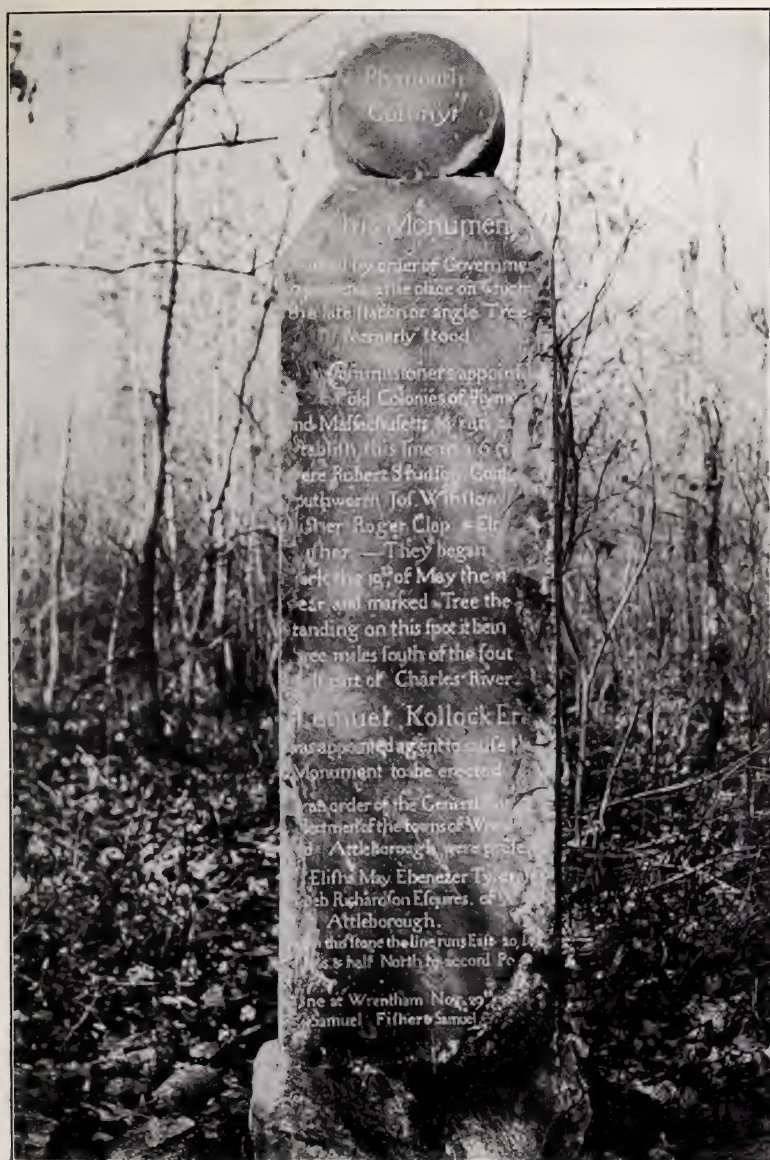 Plymouth
Colony
This Monumen
by order of Governme
the place on which
late ſtation or angle Tree
formerly ſtood
Commiſsioners appoint
old Colonies of Plymo
nd Maſsachuſetts to run
tabliſh this line in
ere Robert Studſon
outhworth Joſ. Winſlow
Roger Clap
iſher. — They began
the 10th of May the n
ear and marked a Tree the
tanding on this ſpot it bein
ree miles ſouth of the ſout
part of Charles River
Lemuel Kollock Eſ
was appointed agent to cauſe
Monument to be erected
order of the General
lectmen of the towns of Wren
Attleborough were preſe
Eliſha May Ebenezer
Richardſon Eſquires. of
Attleborough.
this ſtone the line runs Eaſt 20
& half North to accord
ne at Wrentham Nov. 29
Samuel Fiſher & Samuel